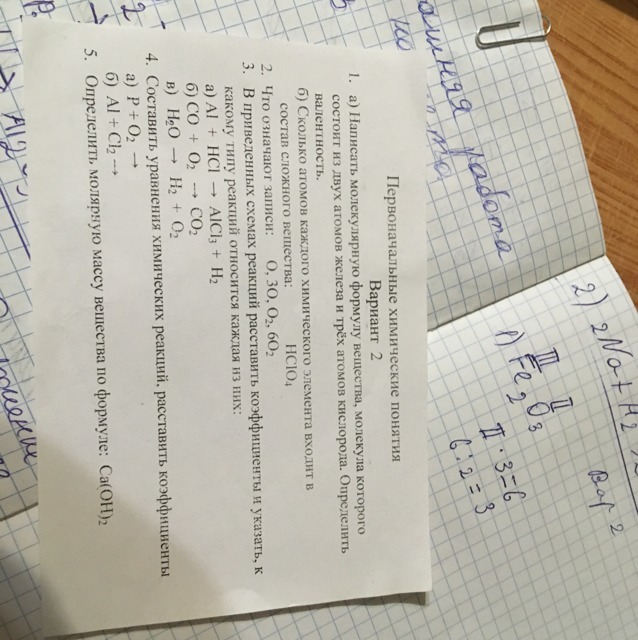 Первоначальные химические понятия
Вариант 2
1. а) Написать молекулярную формулу вещества, молекула которого
состоит из двух атомов железа и трёх атомов кислорода. Определить
валентность.
б) Сколько атомов каждого химического элемента входит в
состав сложного вещества: HClO₄
2. Что означают записи: O, 3O, O₂, 6O₂
3. В приведенных схемах реакций расставить коэффициенты и указать, к
какому типу реакций относится каждая из них:
а) Al + HCl → AlCl₃ + H₂
б) CO + O₂ → CO₂
в) H₂O → H₂ + O₂
4. Составить уравнения химических реакций, расставить коэффициенты
а) P + O₂ →
б) Al + Cl₂ →
5. Определить молярную массу вещества по формуле: Ca(OH)₂
работа
2) 2Na + H₂
Вар 2
III II
1) Fe₂O₃
II · 3 = 6
6 : 2 = 3